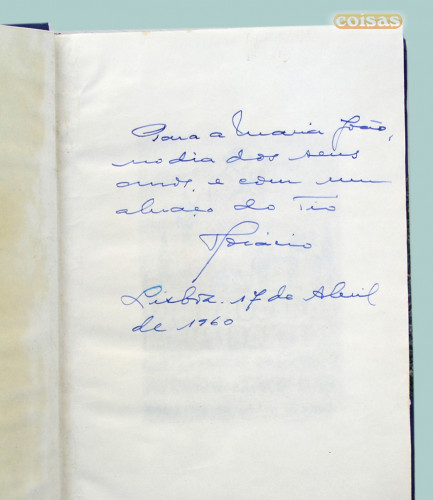 coisas
Para a Maria João,
no dia dos seus
anos, e com um
abraço do Tio
Horácio
Lisboa. 17 de Abril
de 1960